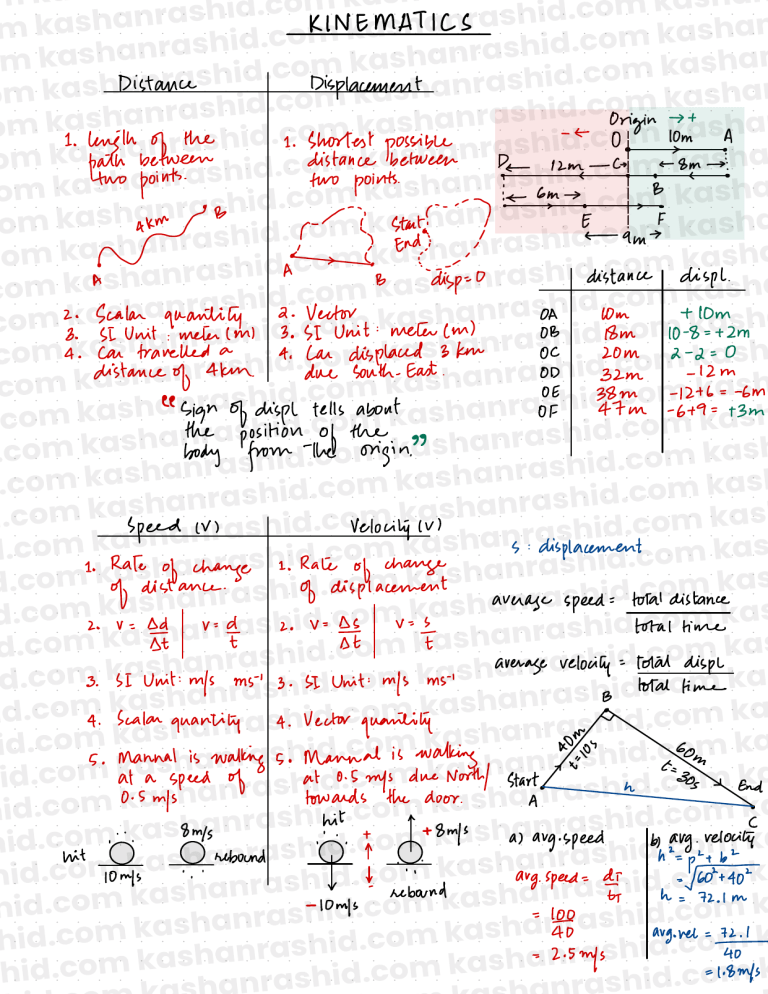 KINEMATICS
Distance
1. length of the
path between
two points.
4km
A
B
2. Scalar quantity
3. SI Unit : meter (m)
4. Car travelled a
distance of 4km
Displacement
1. Shortest possible
distance between
two points.
A
B
Start
End
disp=0
2. Vector
3. SI Unit : meter (m)
4. Car displaced 3 km
due South-East.
"Sign of displ tells about
the position of the
body from the origin."
Origin → +
- ←
O
10m
A
D
12m
C
8m
B
6m
E
F
9m
distance displ.
OA 10m +10m
OB 18m 10-8=+2m
OC 20m 2-2=0
OD 32m -12m
OE 38m -12+6 = -6m
OF 47m -6+9 = +3m
Speed (v)
1. Rate of change
of distance.
2. v = Δd/Δt | v = d/t
3. SI Unit: m/s ms⁻¹
4. Scalar quantity
5. Mannal is walking
at a speed of
0.5 m/s
hit
10 m/s
8m/s
rebound
Velocity (v)
1. Rate of change
of displacement
2. v = Δs/Δt | v = s/t
3. SI Unit: m/s ms⁻¹
4. Vector quantity
5. Mannal is walking
at 0.5 m/s due North/
towards the door.
hit
-10m/s
+
-
+8m/s
rebound
s : displacement
average speed = total distance
total time
average velocity = total displ
total time
B
40m
t=10s
60m
t=30s
Start
A
h
End
C
a) avg.speed
avg.speed = dT/tT
= 100/40
= 2.5 m/s
b) avg. velocity
h² = p² + b²
= √60²+40²
h = 72.1 m
avg.vel = 72.1
40
= 1.8 m/s
kashanrashid.com